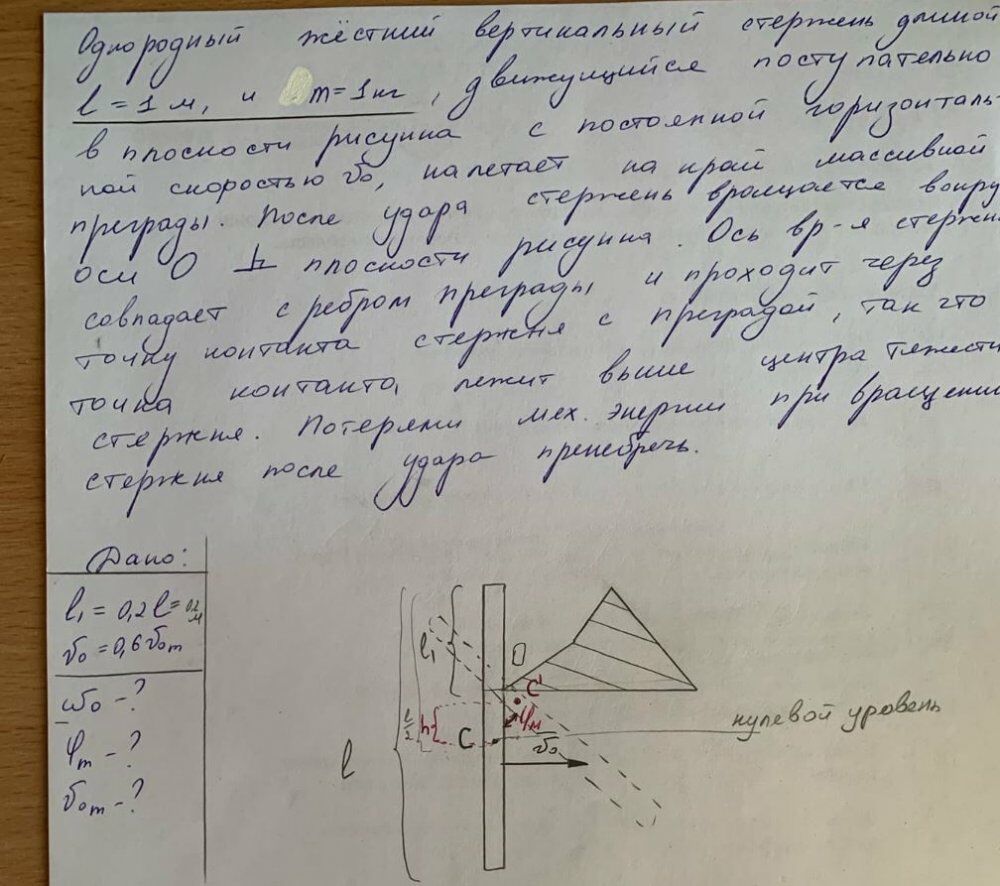 Однородный жёсткий вертикальный стержень длиной
l = 1 м, и m = 1 кг, движущийся поступательно
в плоскости рисунка с постоянной горизонталь-
ной скоростью v₀, налетает на край массивной
преграды. После удара стержень вращается вокру
оси O ⊥ плоскости рисунка. Ось вр-я стержн
совпадает с ребром преграды и проходит через
точку контакта стержня с преградой, так что
точка контакта лежит выше центра тяжести
стержня. Потерями мех. энергии при вращении
стержня после удара пренебречь.
Дано:
l₁ = 0,2 l = 0,2 м
v₀ = 0,6 v₀ₘ
ω₀ - ?
φₘ - ?
v₀ₘ - ?
l
l/2
h
l₁
O
C'
φₘ
C
v₀
нулевой уровень